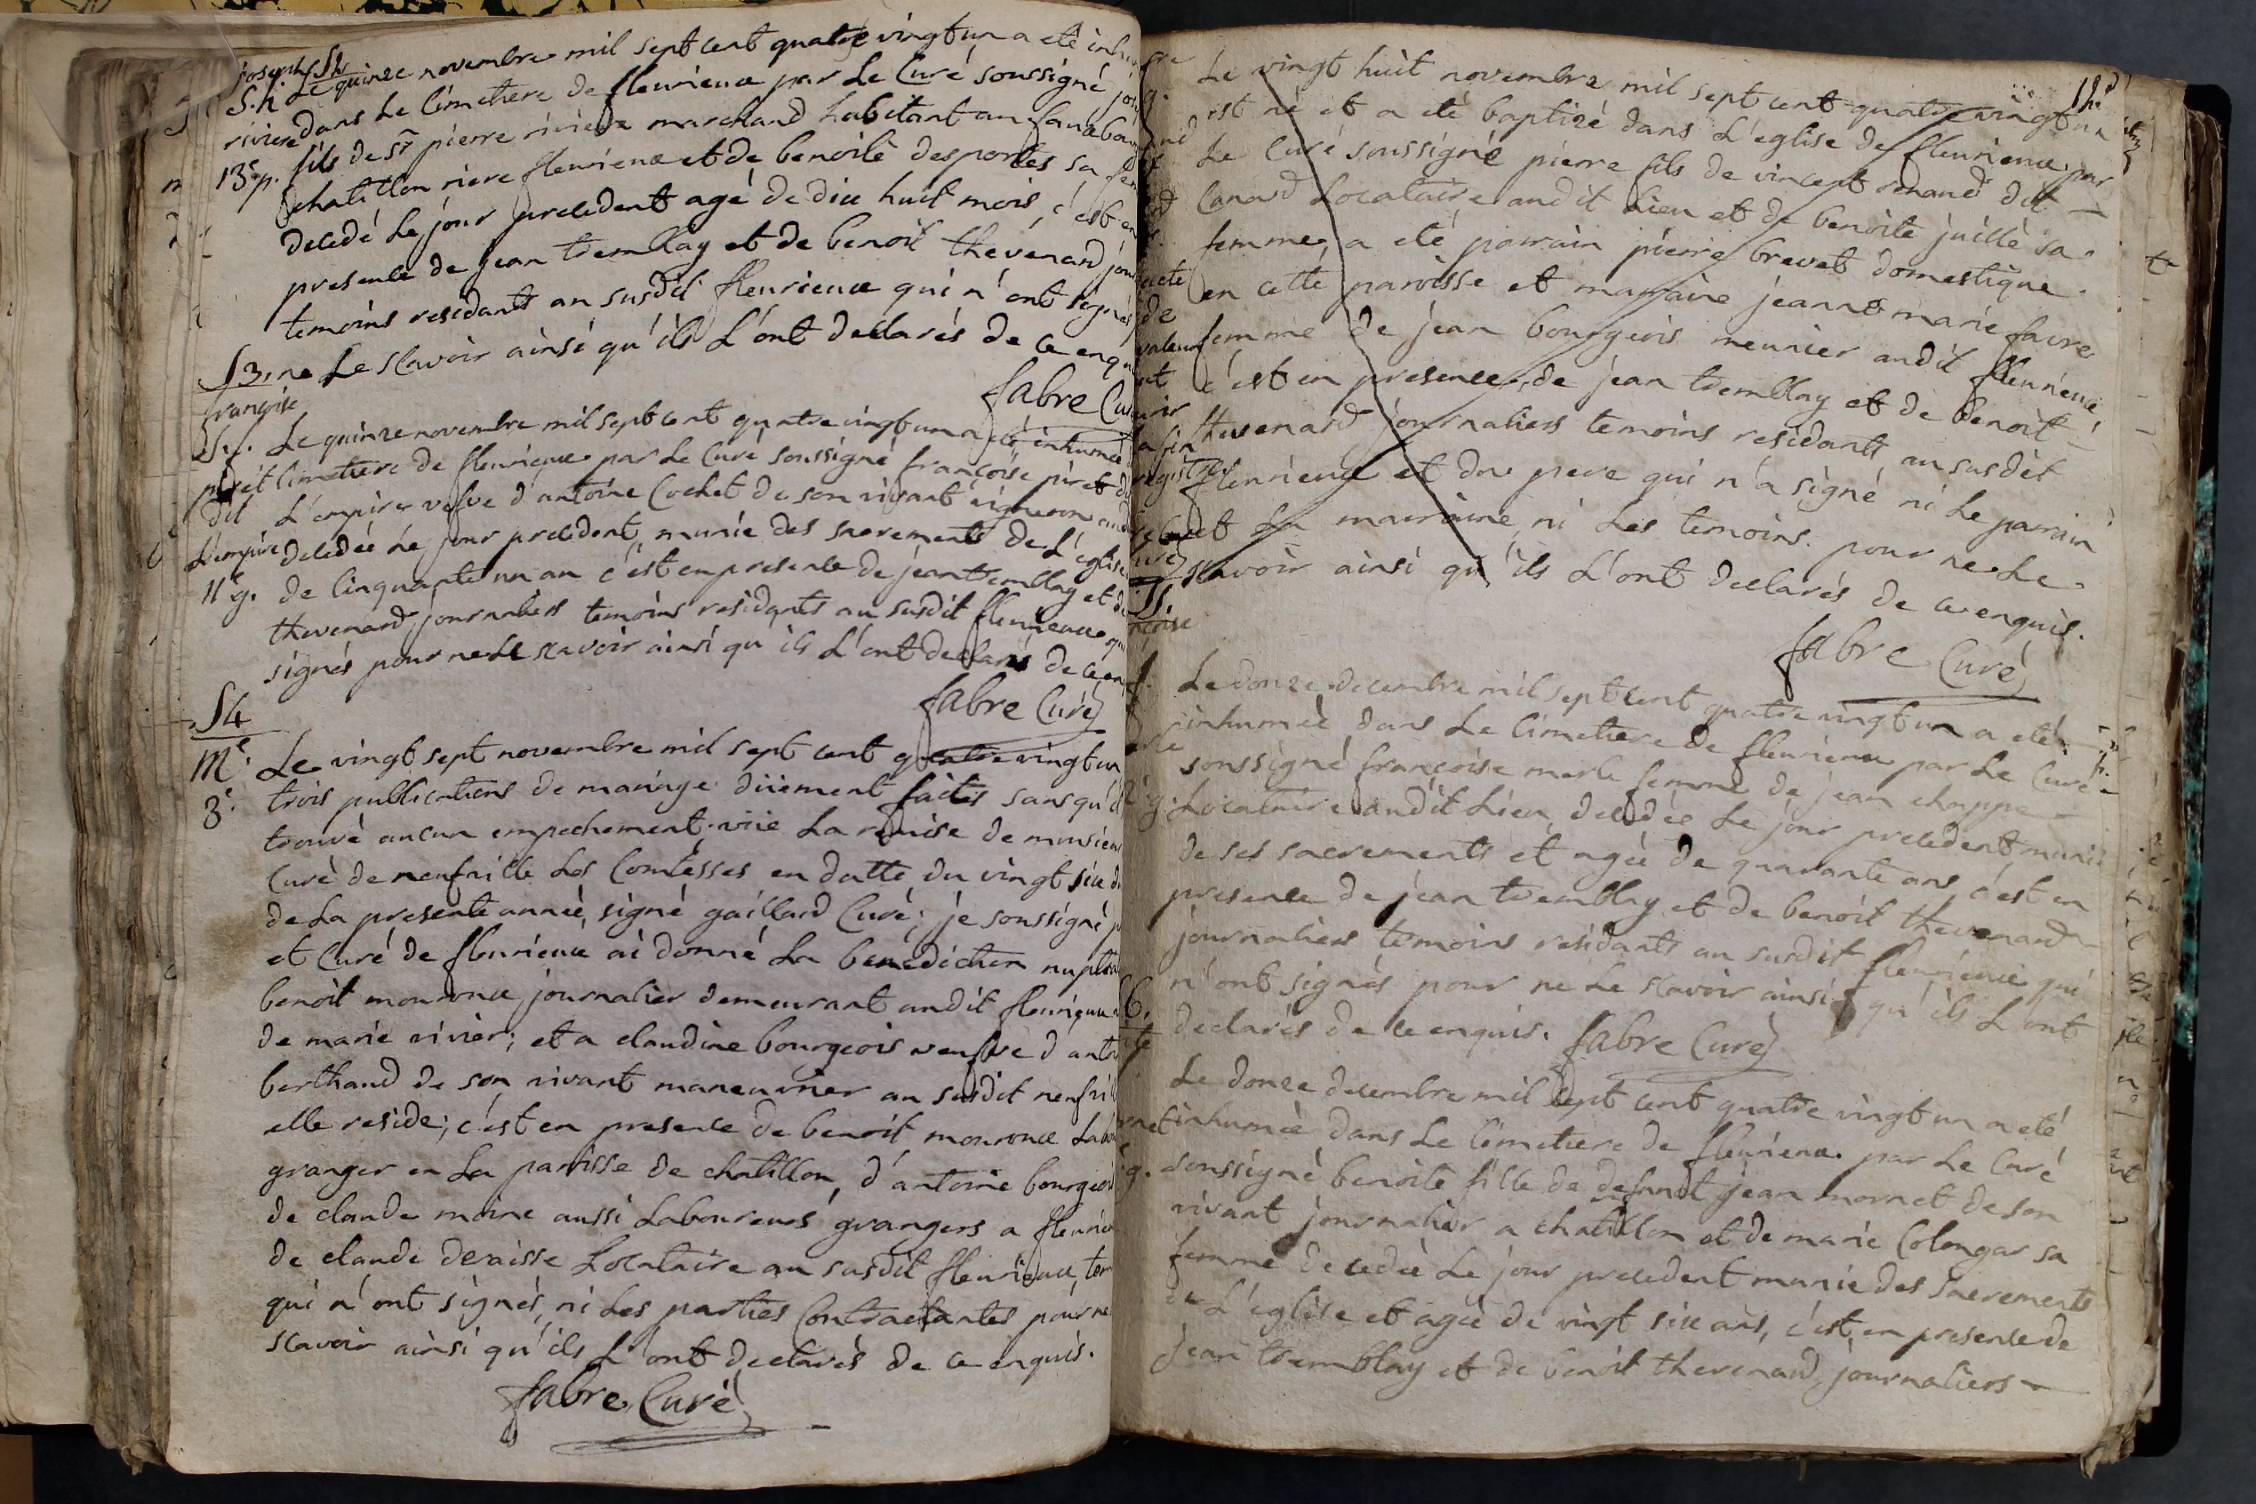 Le quinze novembre mil sept cent quatre vingt un a eté
dans Le Cimetiere De fleurieux par Le Curé soussigné
fils de sr pierre riviere marchand habitant au
chatillon riere fleurieux et de benoite desportes sa
decedé Le jour precedent agé De dix huit mois, c'est en
presence de jean tremblay et de benoit thevenard
temoins residants au susdit fleurieux qui n'ont signés
Le scavoir ainsi qu'ils L'ont declarés de ce
fabre
joseph
S. h.
riviere
13e p.
53.
françoise
S. f.
piret
dit
L'empire
11e g.
Le quinze novembre mil sept cent quatre vingt un a eté inhumée
Cimetiere de fleurieux par Le Curé soussigné françoise piret
L'empire vefve d'antoine Cochet de son vivant vigneron
decedée Le jour precedent, munie des sacrements De L'eglise
de Cinquante un an c'est en presence de jean tremblay et de
thevenard journaliers temoins residants au susdit fleurieux
signés pour ne Le scavoir ainsi qu'ils L'ont declarés De ce
fabre Curé
54
Me.
3e.
Le vingt sept novembre mil sept cent quatre vingt un
trois publications de mariage düement faites sans qu'il
trouvé aucun empechement; vüe La remise de monsieur
Curé de neufville Les Comtesses en datte du vingt six
de La presente année, signé gaillard Curé; je soussigné
et Curé de fleurieux ai donné La benediction
benoit mouroux, journalier demeurant audit fleurieux
de marie vivier; et a claudine bourgeois veufve d
berthaud de son vivant manouvrier au susdit
elle reside; c'est en presence de benoit mouroux
granger en La paroisse de chatillon, d'antoine bourgeois
de claude moine aussi Laboureurs grangers a
de claude deraisse Locataire au susdit fleurieux,
qui n'ont signés, ni Les parties Contractantes pour ne
scavoir ainsi qu'ils L'ont declarés De ce enquis.
fabre Curé
Le vingt huit novembre mil sept cent quatre vingt un
est né et a eté baptizé dans L'eglise de fleurieux par
Le Curé soussigné pierre fils de vincent renaud dit
Canard Locataire audit Lieu et de benoite juillé sa
femme, a eté parrain pierre brevet domestique
en cette paroisse et marraine jeanne marie favre
femme de jean bourgeois meunier audit fleurieux
c'est en presence, de jean tremblay et de benoit
thevenard journaliers temoins residants au susdit
fleurieux et du pere qui n'a signé ni Le parrain
et La marraine, ni Les temoins pour ne Le
scavoir ainsi qu'ils L'ont declarés de ce enquis.
fabre Curé
Le douze decembre mil sept cent quatre vingt un a eté
inhumée dans Le Cimetiere de fleurieux par Le Curé
soussigné françoise merle femme de jean chappe
Locataire audit Lieu, decedée Le jour precedent munie
de ses sacrements et agée de quarante ans c'est en
presence de jean tremblay et de benoit thevenard
journaliers temoins residants au susdit fleurieux qui
n'ont signés pour ne Le scavoir ainsi qu'ils L'ont
declarés de ce enquis. fabre Curé
Le douze decembre mil sept cent quatre vingt un a eté
inhumée dans Le Cimetiere de fleurieux par Le Curé
soussigné benoite fille de defunt jean mornet de son
vivant journalier a chatillon et de marie Colongar sa
femme decedée Le jour precedent munie des Sacrements
de L'eglise et agée de vingt six ans, c'est en presence de
jean tremblay et de benoit thevenard, journaliers